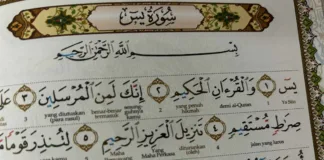 سُورَةُ يسٓ
بِسْمِ ٱللَّهِ ٱلرَّحْمَٰنِ ٱلرَّحِيمِ
يسٓ ١ وَٱلْقُرْءَانِ ٱلْحَكِيمِ ٢ إِنَّكَ لَمِنَ ٱلْمُرْسَلِينَ ٣
Ya Sin demi al-Quran yang penuh hikmah
صِرَٰطٍ مُّسْتَقِيمٍ ٤ تَنزِيلَ ٱلْعَزِيزِ ٱلرَّحِيمِ ٥ لِتُنذِرَ قَوْمًا
jalan yang lurus Maha Perkasa Maha